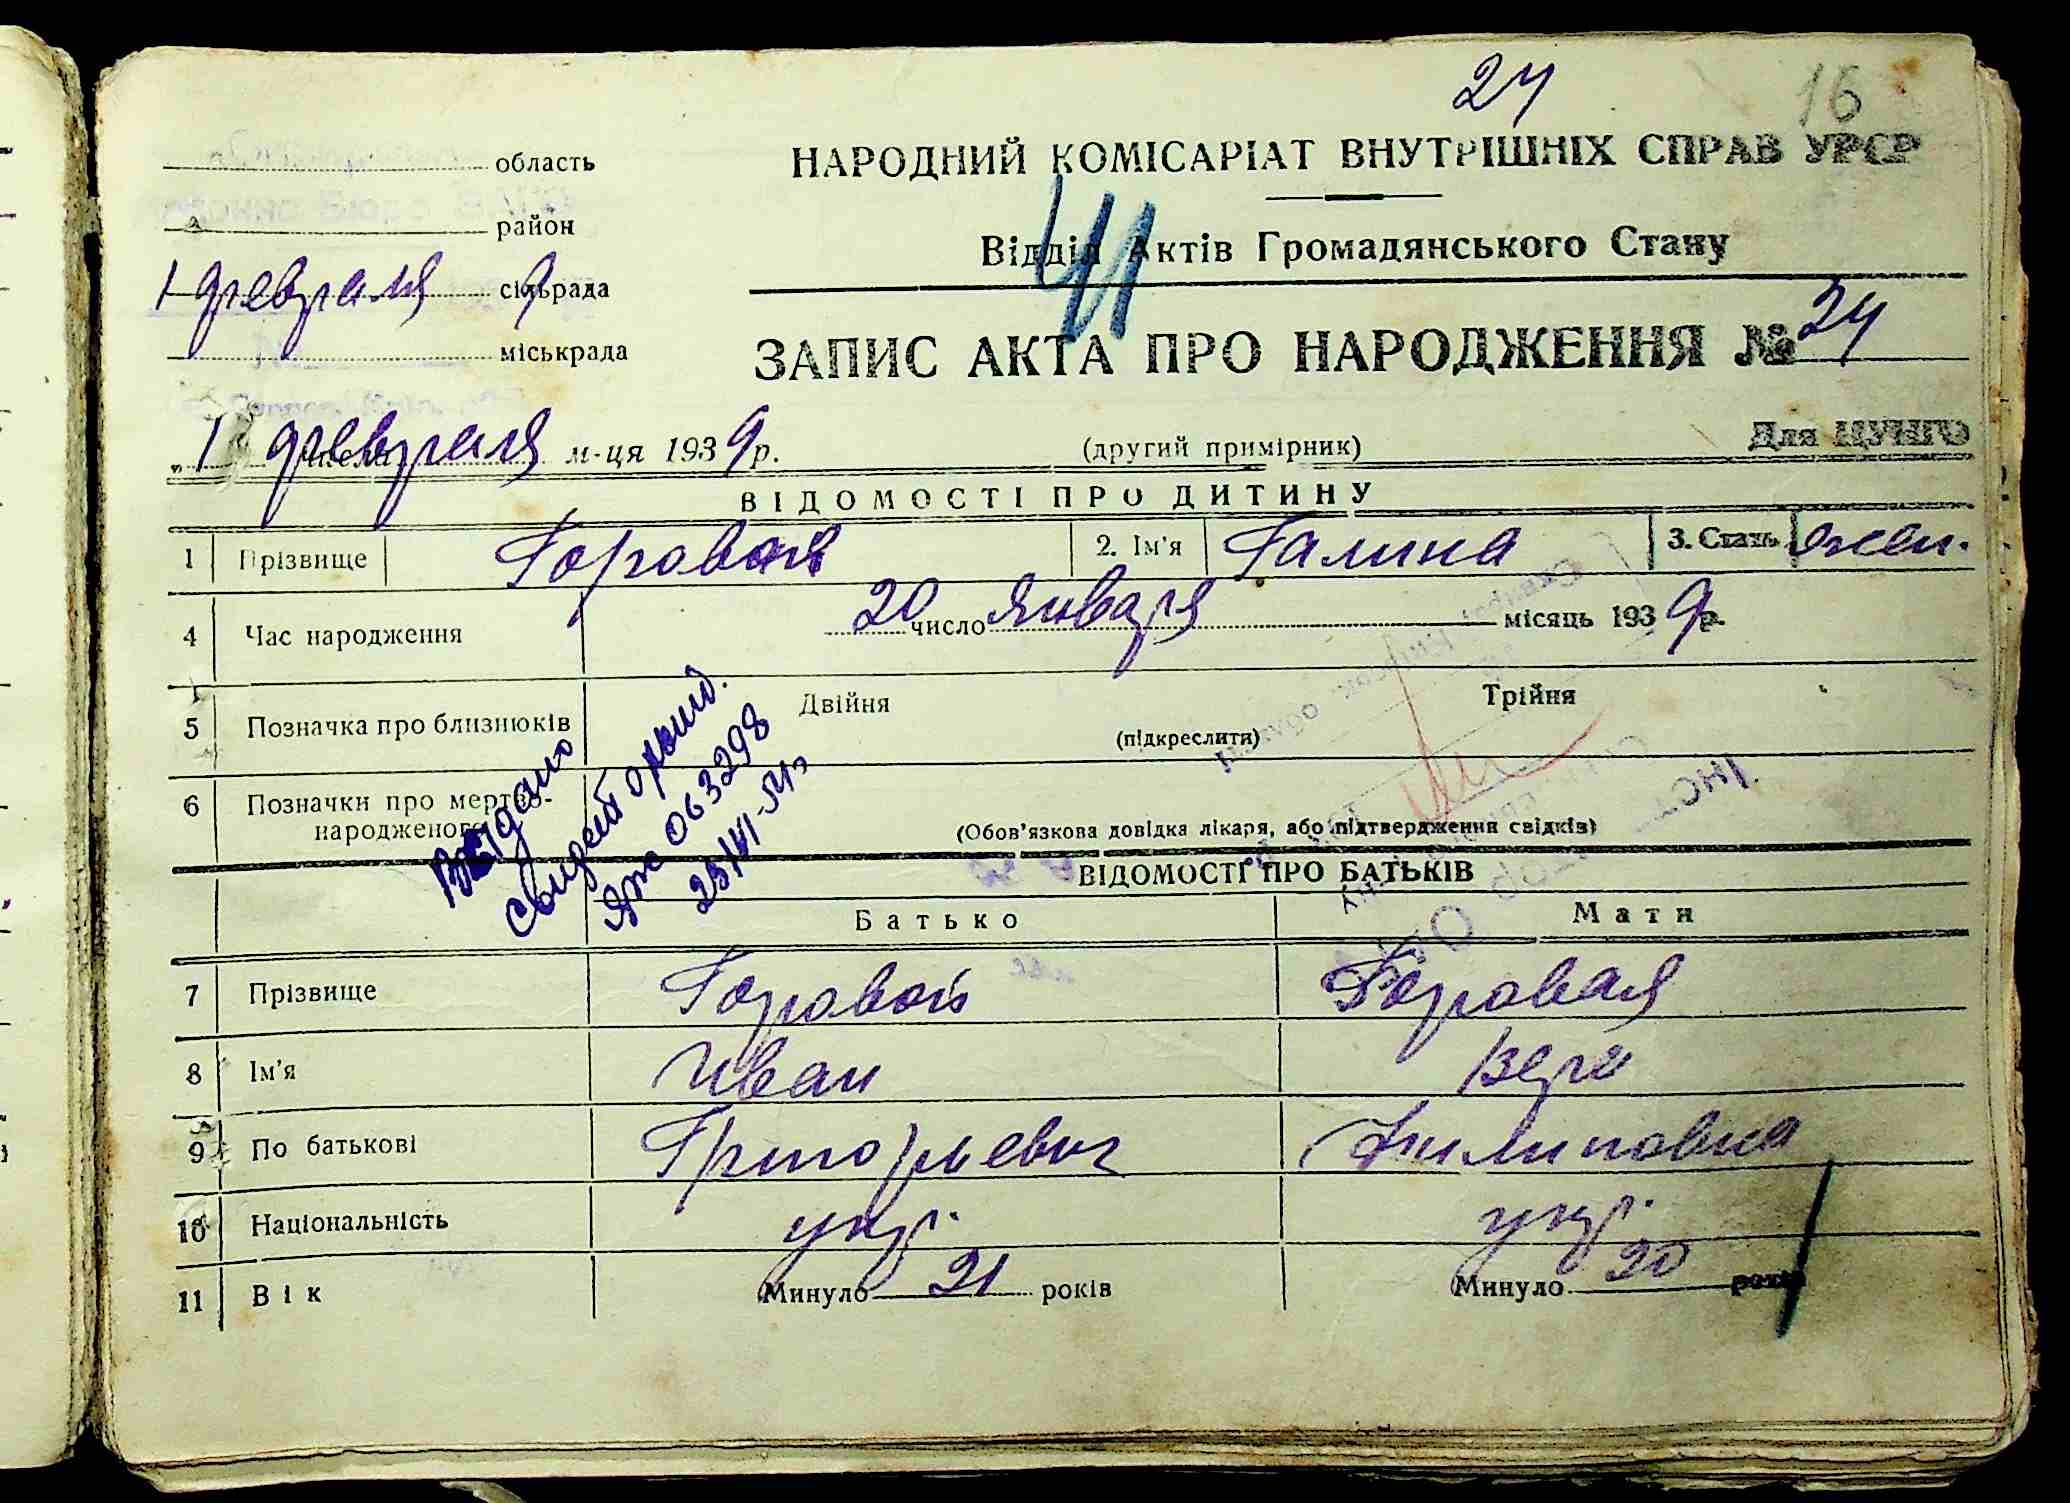 24
16
область
район
1 февраля 9 сільрада
міськрада
НАРОДНИЙ КОМІСАРІАТ ВНУТРІШНІХ СПРАВ УРСР
Відділ Актів Громадянського Стану
41
ЗАПИС АКТА ПРО НАРОДЖЕННЯ № 24
„1 числа февраля м-ця 1939 р.
(другий примірник)
Для ЦУНГО
ВІДОМОСТІ ПРО ДИТИНУ
1 Прізвище Горовая 2. Ім'я Галина 3. Стать жен.
4 Час народження 20 число января місяць 1939 р.
5 Позначка про близнюків Двійня Трійня
(підкреслити)
6 Позначки про мертво-
народженого
(Обов'язкова довідка лікаря, або підтвердження свідків)
Видано
063298
ВІДОМОСТІ ПРО БАТЬКІВ
Батько Мати
7 Прізвище Горовой Горовая
8 Ім'я Иван Вера
9 По батькові Григорьевич Филиповна
10 Національність укр. укр.
11 Вік Минуло 21 років Минуло 20 років